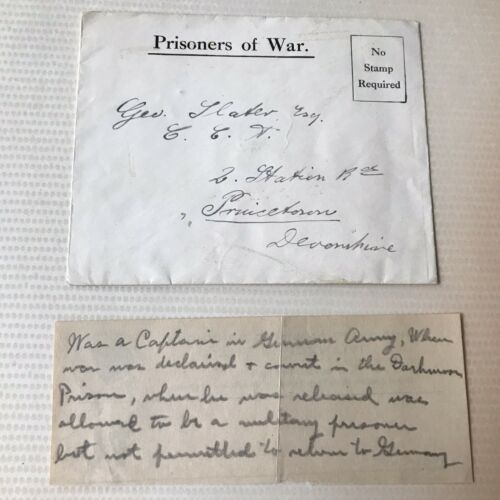 Prisoners of War.
No
Stamp
Required
Geo. Slater Esq.
C. C. N.
2. Station Rd
Princetown
Devonshire
Was a Captain in German Army, When
war was declaired & convict in the Darkmoor
Prison, when he was released was
allowed to be a military prisoner
but not permitted to return to Germany